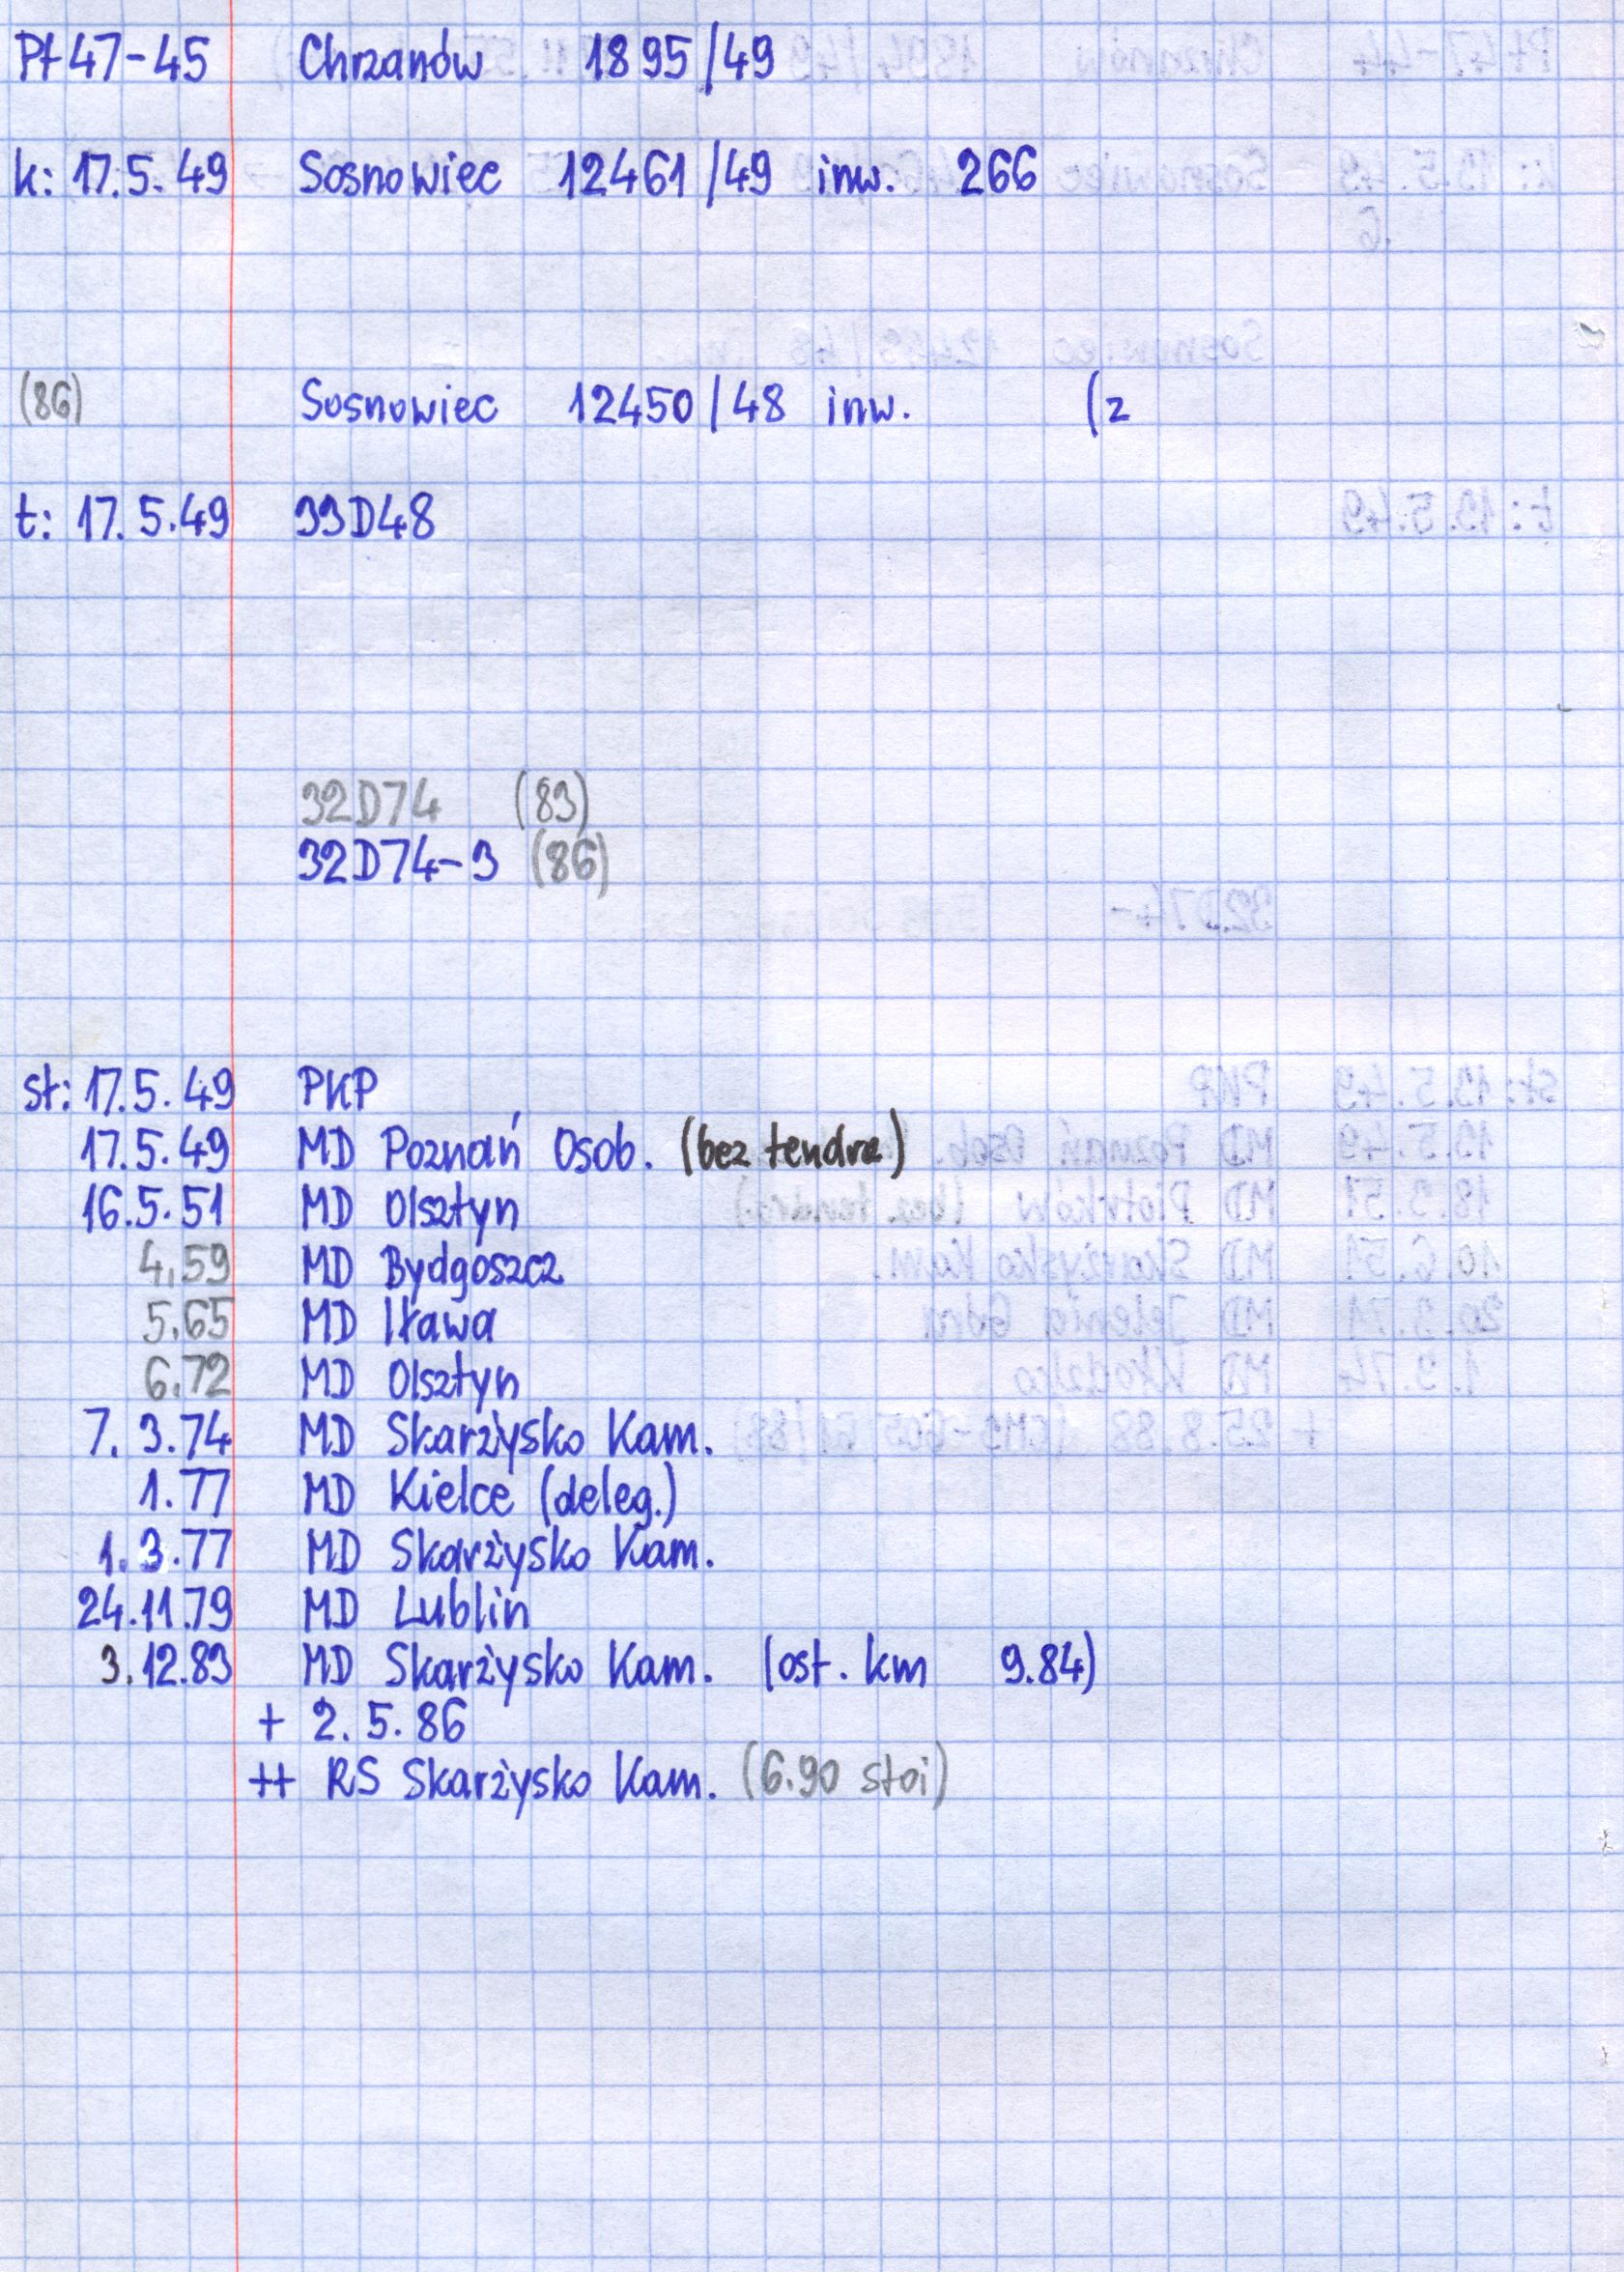 Pt47-45 Chrzanów 1895/49
k: 17.5.49 Sosnowiec 12461/49 inw. 266
(86) Sosnowiec 12450/48 inw. (z
t: 17.5.49 33D48
32D74 (83)
32D74-3 (86)
st: 17.5.49 PKP
17.5.49 MD Poznań Osob. (bez tendra)
16.5.51 MD Olsztyn
4.59 MD Bydgoszcz
5.65 MD Iława
6.72 MD Olsztyn
7.3.74 MD Skarżysko Kam.
1.77 MD Kielce (deleg.)
1.3.77 MD Skarżysko Kam.
24.11.79 MD Lublin
3.12.83 MD Skarżysko Kam. (ost. km 9.84)
+ 2.5.86
++ RS Skarżysko Kam. (6.90 stoi)